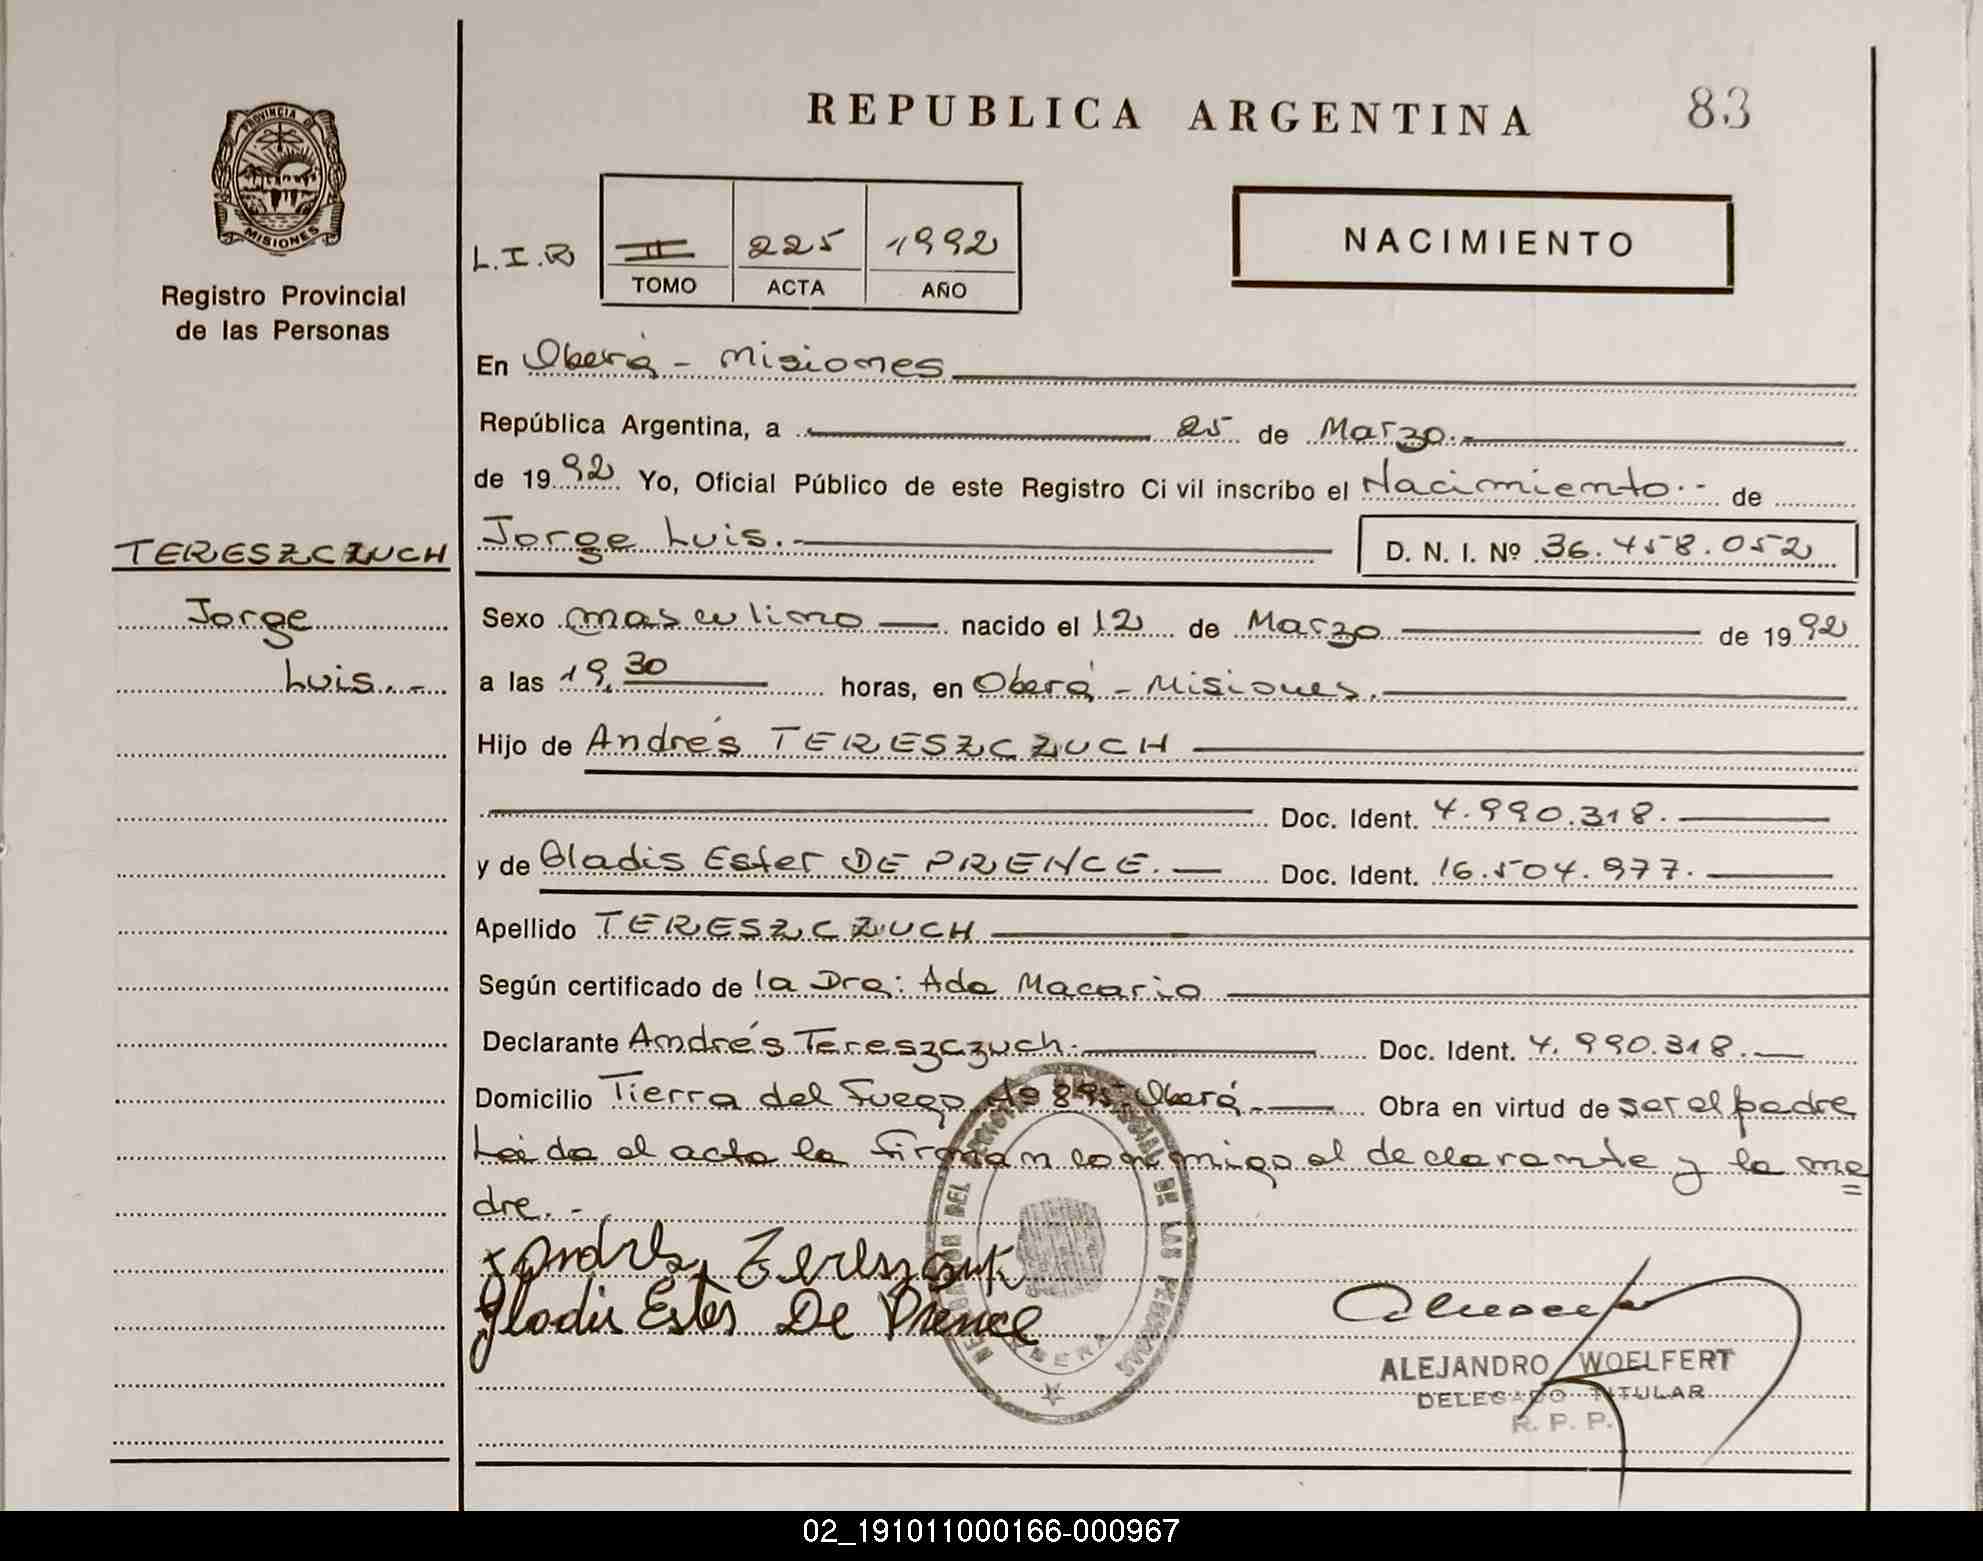 REPUBLICA ARGENTINA
83
PROVINCIA DE
MISIONES
Registro Provincial
de las Personas
NACIMIENTO
L.I.R II 225 1992
TOMO ACTA AÑO
En Oberá - Misiones
República Argentina, a 25 de Marzo.-
de 1992 Yo, Oficial Público de este Registro Ci vil inscribo el Nacimiento.- de
Jorge Luis.- D. N. I. Nº 36.458.052
TERESZCZUCH
Jorge
Luis.-
Sexo masculino nacido el 12 de Marzo de 1992
a las 19,30 horas, en Oberá - Misiones.
Hijo de Andrés TERESZCZUCH
Doc. Ident. 4.990.318.
y de Gladis Ester DE PRENCE. Doc. Ident. 16.504.977.
Apellido TERESZCZUCH
Según certificado de la Dra: Ada Macario
Declarante Andrés Tereszczuch. Doc. Ident. 4.990.318.
Domicilio Tierra del Fuego 895 Oberá. Obra en virtud de ser el padre
Leida el acta la firman conmigo el declarante y la ma
dre.-
Andrés
Gladis Ester De Prence
DE LAS PERSONAS
ALEJANDRO WOELFERT
DELEGADO TITULAR
R. P. P.
02_191011000166-000967